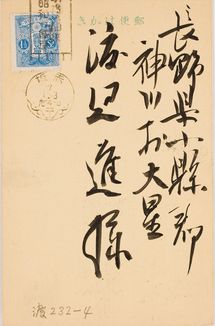 郵便はかき
長野県小縣郡
神川村大屋
渡辺進様
渡232-4